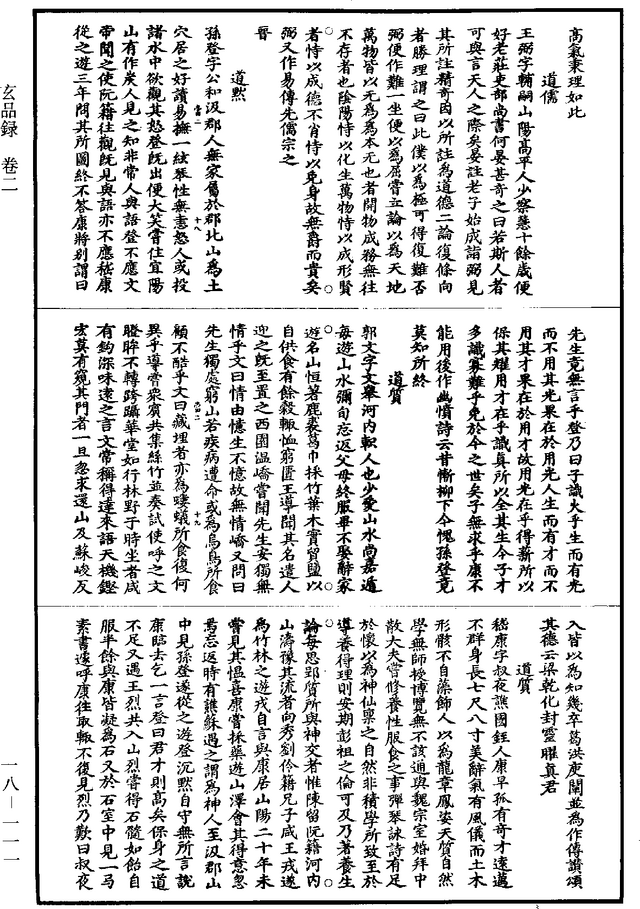 高氣秉理如此
道儒
王弼字輔嗣山陽高平人少察慧十餘歲便
好老莊吏部尚書何晏甚奇之曰若斯人者
可與言天人之際矣晏註老子始成詣弼見
其所註精奇因以所註為道德二論復條向
者勝理謂之曰此僕以為極可得復難否
弼便作難一坐便以為屈嘗立論以為天地
萬物皆以无為為本无也者開物成務無往
不存者也陰陽恃以化生萬物恃以成形賢
者恃以成德不肖恃以免身故無爵而貴矣
弼又作易傳先儒宗之
晉
道默
孫登字公和汲郡人無家屬於郡北山為土
穴居之好讀易撫一絃琴性無恚怒人或投
諸水中欲觀其怒登既出便大笑嘗住宜陽
山有作炭人見之知非常人與語登不應文
帝聞之使阮籍往觀既見與語亦不應嵇康
從之遊三年問其所圖終不答康將別謂曰
先生竟無言乎登乃曰子識火乎生而有光
而不用其光果在於用光人生而有才而不
用其才果在於用才故用光在乎得薪所以
保其耀用才在乎識真所以全其生今子才
多識寡難乎免於今之世矣子無求乎康不
能用後作幽憤詩云昔慚柳下今愧孫登竟
莫知所終
道質
郭文字文舉河內軹人也少愛山水尚嘉遁
每遊山水彌旬忘返父母終服畢不娶辭家
遊名山恒著鹿裘葛巾採竹葉木實貿鹽以
自供食有餘穀輙恤窮匱王導聞其名遣人
迎之既至置之西園溫嶠嘗問先生安獨無
情乎文曰情由憶生不憶故無情嶠又問曰
先生獨處窮山若疾病遭命或為烏鳥所食
顧不酷乎文曰藏埋者亦為螻蟻所食復何
異乎導嘗衆賓共集絲竹並奏試使呼之文
瞪眸不轉跨躡華堂如行林野于時坐者咸
有鈎深味遠之言文常稱得達來語天機鏗
宏莫有窺其門者一旦忽求還山及蘇峻反
入皆以為知幾卒葛洪庾闡並為作傳讚頌
其德云梁乾化封靈曜真君
道質
嵇康字叔夜譙國銍人康早孤有奇才遠邁
不群身長七尺八寸美辭氣有風儀而土木
形骸不自藻飾人以為龍章鳳姿天質自然
學無師授博覽無不該通與魏宗室婚拜中
散大夫嘗修養性服食之事彈琴詠詩有足
於懷以為神仙稟之自然非積學所致至於
導養得理則安期彭祖之倫可及乃著養生
論每思郢質所與神交者惟陳留阮籍河內
山濤豫其流者向秀劉伶籍兄子咸王戎遂
為竹林之遊戎自言與康居山陽二十年未
嘗見其慍喜康嘗採藥遊山澤會其得意忽
焉忘返時有譙蘇遇之謂為神人至汲郡山
中見孫登遂從之遊登沉默自守無所言說
康臨去乞一言登曰君才則高矣保身之道
不足又遇王烈共入山烈嘗得石髓如飴自
服半餘與康皆凝為石又於石室中見一馬
素書遽呼康往取輙不復見烈乃歎曰叔夜
玄品録 卷二
一八—一一一